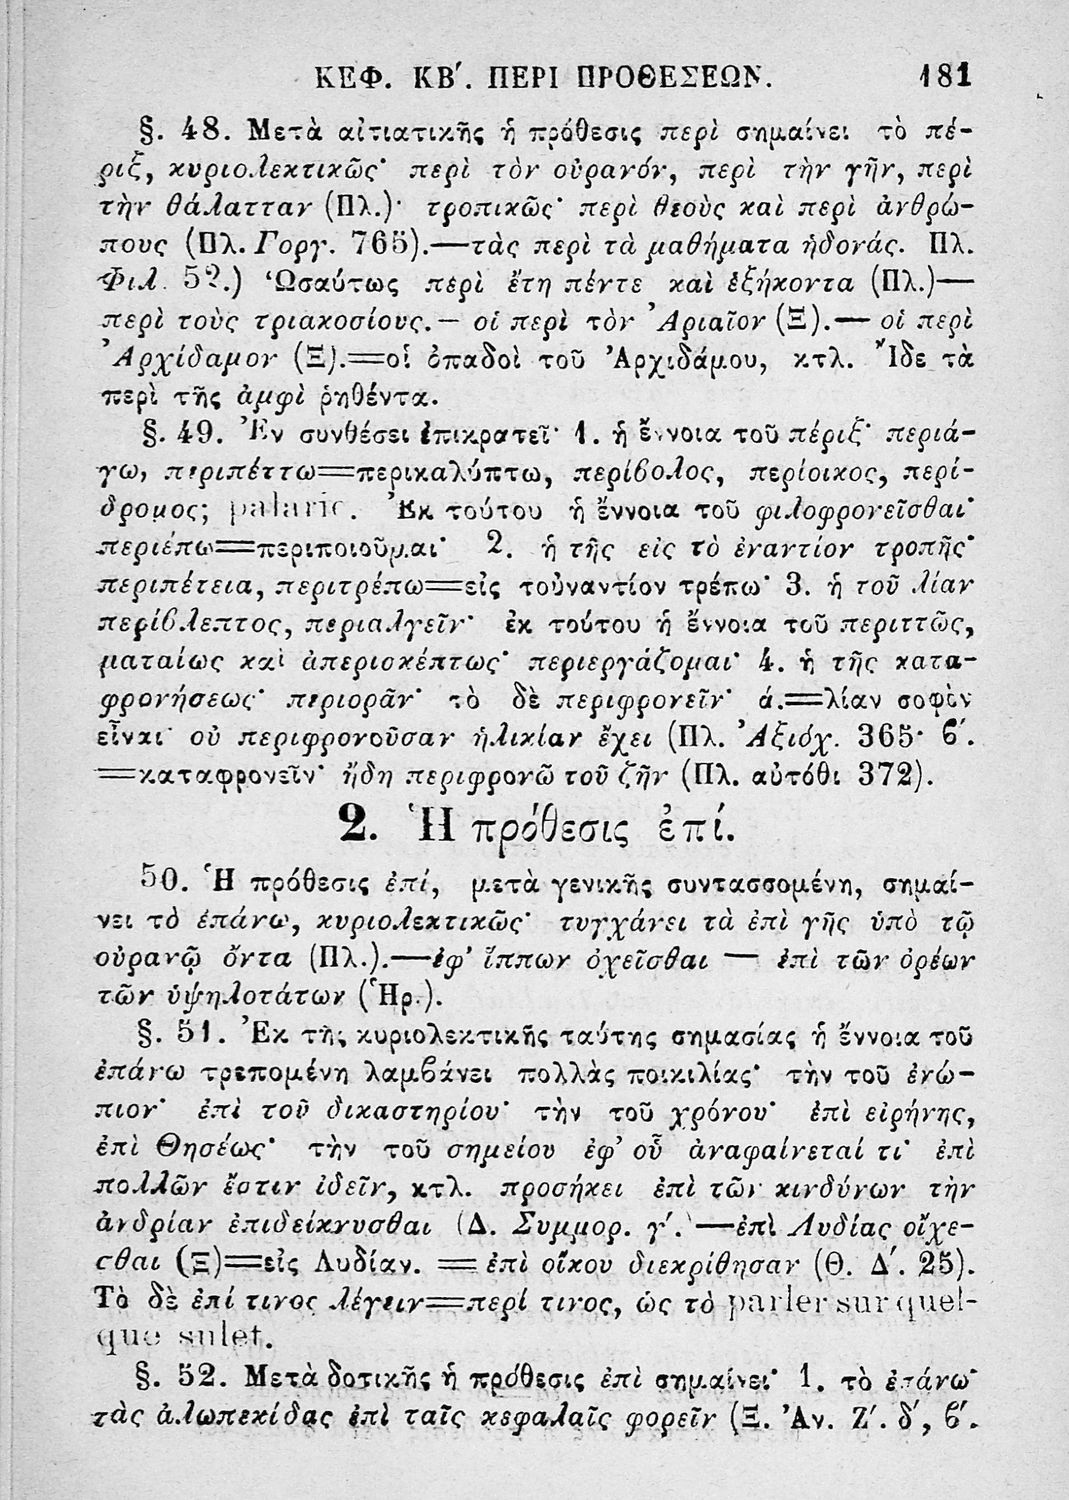 ΚΕΦ. ΚΒ΄. ΠΕΡΙ ΠΡΟΘΕΣΕΩΝ. 181
§. 48. Μετὰ αἰτιατικῆς ἡ πρόθεσις περὶ σημαίνει τὸ πέ-
ριξ, κυριολεκτικῶς· περὶ τὸν οὐρανόν, περὶ τὴν γῆν, περὶ
τὴν θάλατταν (Πλ.)· τροπικῶς· περὶ θεοὺς καὶ περὶ ἀνθρώ-
πους (Πλ. Γοργ. 765).—τὰς περὶ τὰ μαθήματα ἡδονάς. Πλ.
Φιλ. 52.) Ὡσαύτως περὶ ἔτη πέντε καὶ ἑξήκοντα (Πλ.)—
περὶ τοὺς τριακοσίους.— οἱ περὶ τὸν Ἀριαῖον (Ξ).— οἱ περὶ
Ἀρχίδαμον (Ξ).=οἱ ὀπαδοὶ τοῦ Ἀρχιδάμου, κτλ. Ἴδε τὰ
περὶ τῆς ἀμφὶ ῥηθέντα.
§. 49. Ἐν συνθέσει ἐπικρατεῖ· 1. ἡ ἔννοια τοῦ πέριξ· περιά-
γω, περιπέττω=περικαλύπτω, περίβολος, περίοικος, περί-
δρομος; Ἐκ τούτου ἡ ἔννοια τοῦ φιλοφρονεῖσθαι·
περιέπω=περιποιοῦμαι· 2. ἡ τῆς εἰς τὸ ἐναντίον τροπῆς·
περιπέτεια, περιτρέπω=εἰς τοὐναντίον τρέπω· 3. ἡ τοῦ λίαν
περίβλεπτος, περιαλγεῖν· ἐκ τούτου ἡ ἔννοια τοῦ περιττῶς,
ματαίως καὶ ἀπερισκέπτως· περιεργάζομαι· 4. ἡ τῆς κατα-
φρονήσεως· περιορᾶν· τὸ δὲ περιφρονεῖν· ά.=λίαν σοφὸν
εἶναι· οὐ περιφρονοῦσαν ἡλικίαν ἔχει (Πλ. Ἀξιόχ. 365· β΄.
=καταφρονεῖν· ἤδη περιφρονῶ τοῦ ζῆν (Πλ. αὐτόθι 372).
2. Ἡ πρόθεσις ἐπί.
50. Ἡ πρόθεσις ἐπί, μετὰ γενικῆς συντασσομένη, σημαί-
νει τὸ ἐπάνω, κυριολεκτικῶς· τυγχάνει τὰ ἐπὶ γῆς ὑπὸ τῷ
οὐρανῷ ὄντα (Πλ.).—ἐφ' ἵππων ὀχεῖσθαι — ἐπὶ τῶν ὀρέων
τῶν ὑψηλοτάτων (Ἡρ.).
§. 51. Ἐκ τῆς κυριολεκτικῆς ταύτης σημασίας ἡ ἔννοια τοῦ
ἐπάνω τρεπομένη λαμβάνει πολλὰς ποικιλίας· τὴν τοῦ ἐνώ-
πιον· ἐπὶ τοῦ δικαστηρίου· τὴν τοῦ χρόνου· ἐπὶ εἰρήνης,
ἐπὶ Θησέως· τὴν τοῦ σημείου ἐφ' οὗ ἀναφαίνεταί τι· ἐπὶ
πολλῶν ἔστιν ἰδεῖν, κτλ. προσήκει ἐπὶ τῶν κινδύνων τὴν
ἀνδρίαν ἐπιδείκνυσθαι (Δ. Συμμορ. γ΄.)—ἐπὶ Λυδίας οἴχε-
σθαι (Ξ)=εἰς Λυδίαν. = ἐπὶ οἴκου διεκρίθησαν (Θ. Δ΄. 25).
Τὸ δὲ ἐπί τινος λέγειν=περί τινος, ὡς τὸ parler sur quel-
que sujet.
§. 52. Μετὰ δοτικῆς ἡ πρόθεσις ἐπὶ σημαίνει· 1. τὸ ἐπάνω·
τὰς ἀλωπεκίδας ἐπὶ ταῖς κεφαλαῖς φορεῖν (Ξ. Ἀν. Ζ΄. δ΄, β΄.